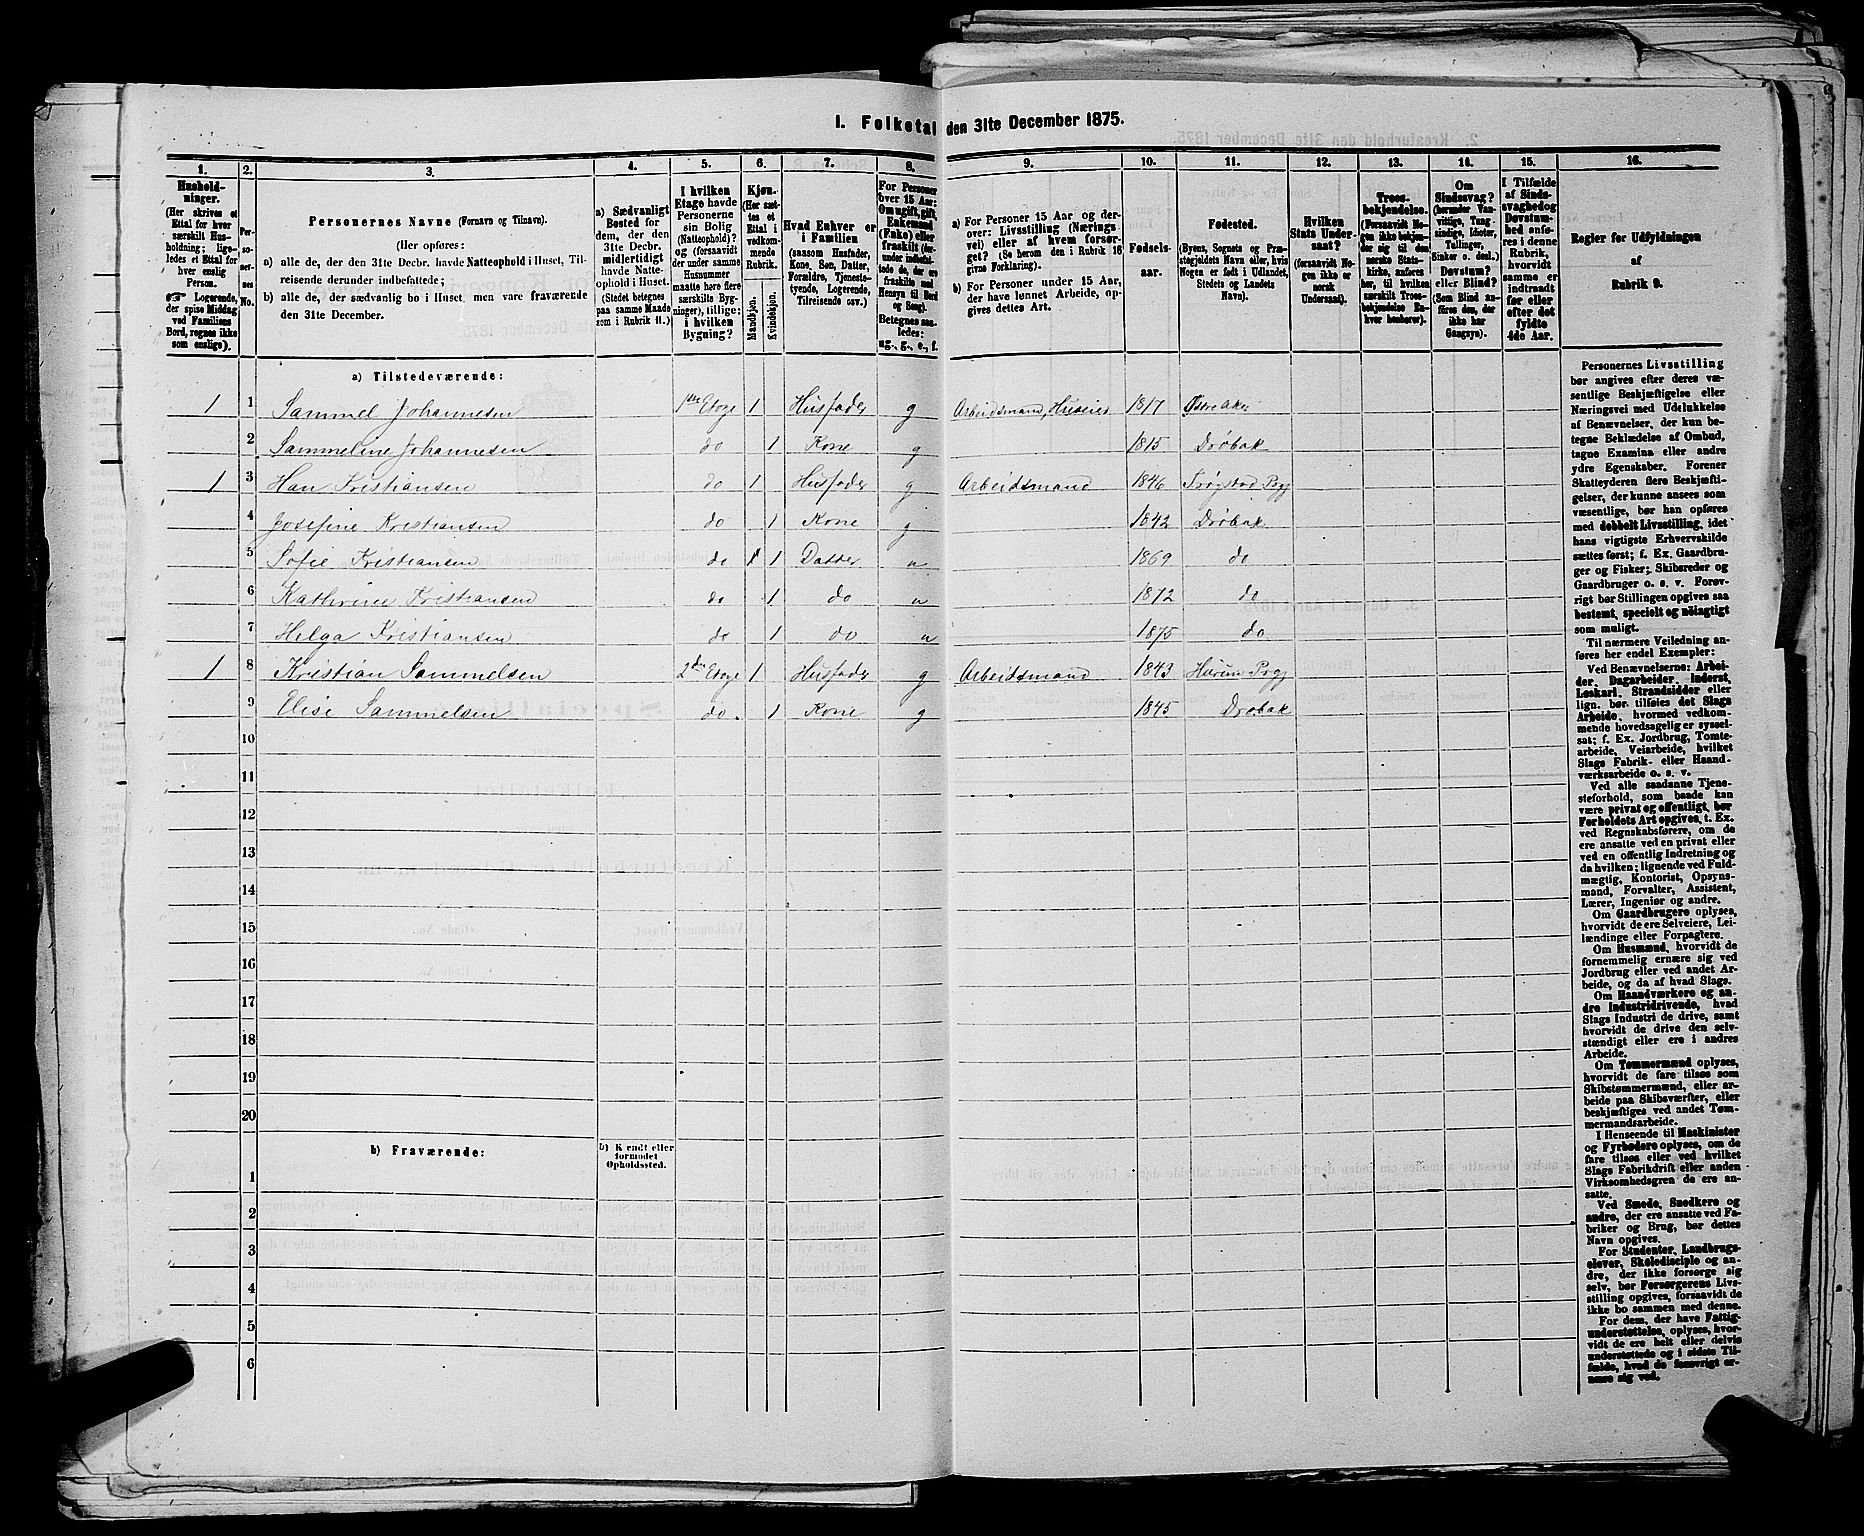 1. Folketal den 31te December 1875.
1. 2. 3. 4. 5. 6. 7. 8. 9. 10. 11. 12. 13. 14. 15. 16.
Hushold-
ninger.
(Her skrives et
Ettal for hver
særskilt Hus-
holdning; lige-
ledes et Ettal for
hver enslig
Person.
Logerende,
der spise Middag
ved Familiens
Bord, regnes ikke
som enslige).
Per-
so-
ner-
nes
No.
Personernes Navne (Fornavn og Tilnavn).
(Her opføres:
a) alle de, der den 31te Decbr. havde Natteophold i Huset, Til-
reisende derunder indbefattede;
b) alle de, der sædvanlig bo i Huset, men vare fraværende
den 31te December.
a) Sædvanligt
Bosted for
dem, der den
31te Decbr.
midlertidigt
havde Natte-
ophold i Huset.
(Stedet betegnes
paa samme Maade
som i Rubrik 11.)
I hvilken
Etage havde
Personerne
sin Bolig
(Natteophold)?
og (forsaavidt
der under samme
Husnummer
maatte høre flere
særskilte Byg-
ninger), tillige:
i hvilken
Bygning?
Kjøn.
(Her sæt-
tes et
Ettal i
vedkom-
mende
Rubrik.)
Mandkjøn.
Kvindekjøn.
Hvad Enhver er
i Familien
(saasom Husfader,
Kone, Søn, Datter,
Forældre, Tjeneste-
tyende, Logerende,
Tilreisende osv.)
For Personer
over 15 Aar:
Om ugift, gift,
Enkemand
(Enke) eller
fraskilt (der-
under indbefat-
tede de, der ere
fraskilte med
Hensyn til Bord
og Seng).
Betegnes saa-
ledes:
ug., g., e., f.
a) For Personer 15 Aar og der-
over: Livsstilling (Nærings-
vei) eller af hvem forsør-
get? (Se herom den i Rubrik 16
givne Forklaring).
b) For Personer under 15 Aar,
der have lønnet Arbeide, op-
gives dettes Art.
Fødsels-
aar.
Fødested.
(Byens, Sognets og Præ-
stegjeldets Navn eller, hvis
Nogen er født i Udlandet,
Stedets og Landets
Navn).
Hvilken
Stats Under-
saat?
(forsaavidt No-
gen ikke er
norsk
Undersaat).
Troes-
bekjendelse.
(Forsaavidt No-
gen ikke bekjen-
der sig til den
norske Stats-
kirke, anføres
her, til hvilken
særskilt Troes-
bekjendelse En-
hver henhører).
Om
Sindssvag?
(herunder Van-
vittige, Tung-
sindige, Idioter,
Tullinger,
Sinker o. desl.)
Døvstum?
eller Blind?
(Som Blind an-
føres den, der
ikke har
Gangsyn).
I Tilfælde
af Sinds-
svaghed og
Døvstum-
hed anfø-
res i denne
Rubrik,
hvorvidt
samme er
indtraadt
før eller
efter det
fyldte
4de Aar.
Regler for Udfyldningen
af
Rubrik 9.
a) Tilstedeværende:
1 1 Sammel Johannesen 1ste Etage 1 Husfader g Arbeidsmand, Huseier 1817 Østre Aker
2 Sammeline Johannesen do 1 Kone g 1815 Drøbak
1 3 Han Kristiansen do 1 Husfader g Arbeidsmand 1846 Trøgstad Pgj
4 Josefine Kristiansen do 1 Kone g 1842 Drøbak
5 Sofie Kristiansen do 1 1 Datter u 1869 do
6 Kathrine Kristiansen do 1 do u 1872 do
7 Helga Kristiansen do 1 do u 1875 do
1 8 Kristian Sammelsen 2den Etage 1 Husfader g Arbeidsmand 1843 Hurum Pgj
9 Elise Sammelsen do. 1 Kone g 1845 Drøbak
10
11
12
13
14
15
16
17
18
19
20
b) Fraværende:
b) Kjendt eller
formodet
Opholdssted.
1
2
3
4
5
6
Personernes Livsstilling
bør angives efter deres væ-
sentlige Beskjæftigelse eller
Næringsvei med Udelukkelse
af Benævnelser, der kun be-
tegne Beklædelse af Ombud,
tagne Examina eller andre
ydre Egenskaber. Forener
Skatteyderen flere Beskjæfti-
gelser, der kunne ansees som
væsentlige, bør han opføres
med dobbelt Livsstilling, idet
hans vigtigste Erhvervskilde
sættes først; f. Ex. Gaardbru-
ger og Fisker; Skibsreder og
Gaardbruger o. s. v. Forøv-
rigt bør Stillingen opgives saa
bestemt, specielt og nøiagtigt
som muligt.
Til nærmere Veiledning an-
føres her endel Exempler:
Ved Benævnelserne: Arbei-
der, Dagarbeider, Inderst,
Løskarl, Strandsidder eller
lign. bør tilføies det Slags
Arbeide, hvormed vedkom-
mende hovedsagelig er syssel-
sat; f. Ex. Jordbrug, Tomte-
arbeide, Veiarbeide, hvilket
Slags Fabrik- eller Haand-
værksarbeide o. s. v.
Ved alle saadanne Tjene-
steforhold, som baade kan
være privat og offentligt, bør
Forholdets Art opgives, t. Ex.
ved Regnskabsførere, om de
ere ansatte ved en privat eller
ved en offentlig Indretning og
da hvilken; lignende ved Fuld-
mægtig, Kontorist, Opsyns-
mand, Forvalter, Assistent,
Lærer, Ingeniør og andre.
Om Gaardbrugere oplyses,
hvorvidt de ere Selveiere, Lei-
lændinge eller Forpagtere.
Om Husmænd, hvorvidt de
fornemmelig ernære sig ved
Jordbrug eller ved andet Ar-
beide, og da af hvad Slags.
Om Haandværkere og an-
dre Industridrivende, hvad
Slags Industri de drive, samt
hvorvidt de drive den selv-
stændigt eller ere i andres
Arbeide.
Om Tømmermænd oplyses,
hvorvidt de fare tilsøs som
Skibstømmermænd, eller ar-
beide paa Skibsværfter, eller
beskjæftiges ved andet Tøm-
mermandsarbeide.
I Henseende til Maskinister
og Fyrbødere oplyses, om de
fare tilsøs eller ved hvilket
Slags Fabrikdrift eller anden
Virksomhedsgren de ere an-
satte.
Ved Smede, Snedkere og
andre, der ere ansatte ved Fa-
briker og Brug, bør dettes
Navn opgives.
For Studenter, Landbrugs-
elever, Skoledisciple og an-
dre, der ikke forsørge sig
selv, bør Forsørgerens Livs-
stilling opgives, forsaavidt de
ikke bo sammen med denne.
For dem, der have Fattig-
understøttelse, oplyses, hvor-
vidt de ere helt eller delvis
understøttede og i sidste Til-
fælde, hvad de forøvrigt er-
nære sig ved.